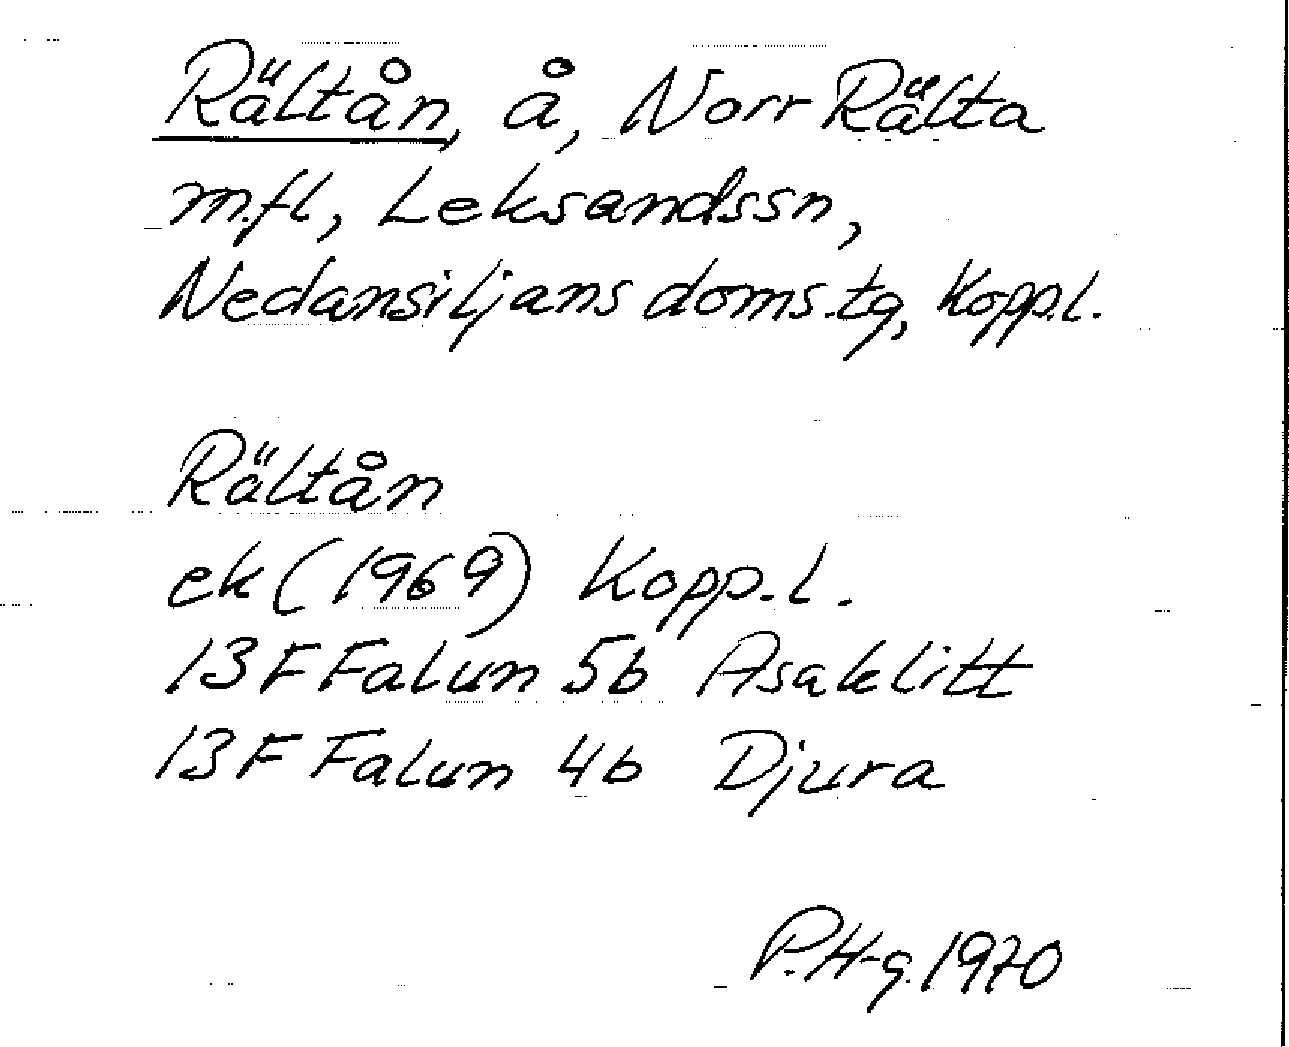 Rältån, å, Norr Rälta
m.fl, Leksandssn,
Nedansiljans doms.tg, Kopp.l.
Rältån
ek (1969) Kopp.l.
13F Falun 5b Asaklitt
13F Falun 4b Djura
P.H-g. 1970